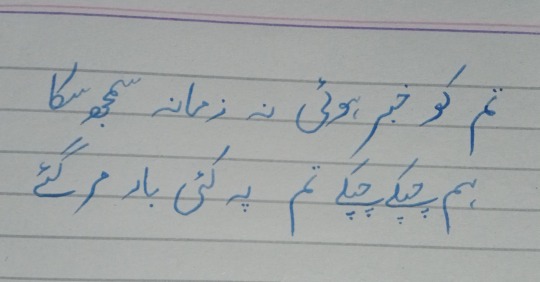 تم کو خبر ہوئی نہ زمانہ سمجھ سکا
ہم چپکے چپکے تم پہ کئی بار مر گئے